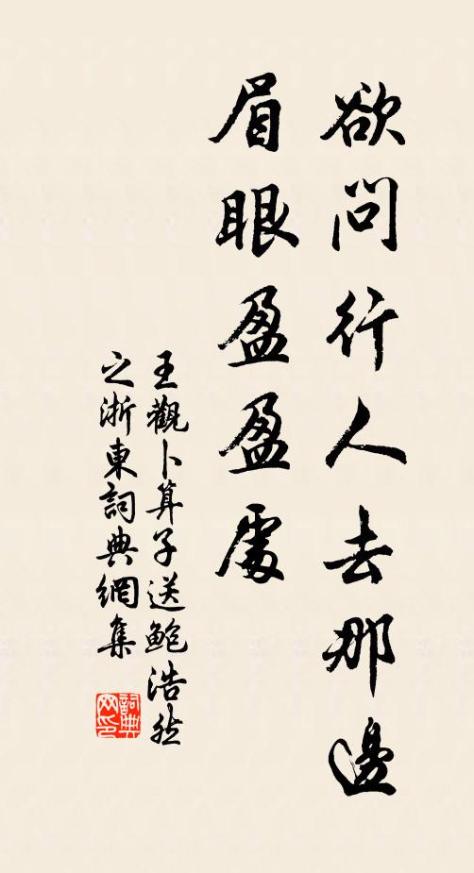 欲問行人去那邊
眉眼盈盈處
王觀卜算子送鮑浩然
之浙東詞典網集
詞典網印